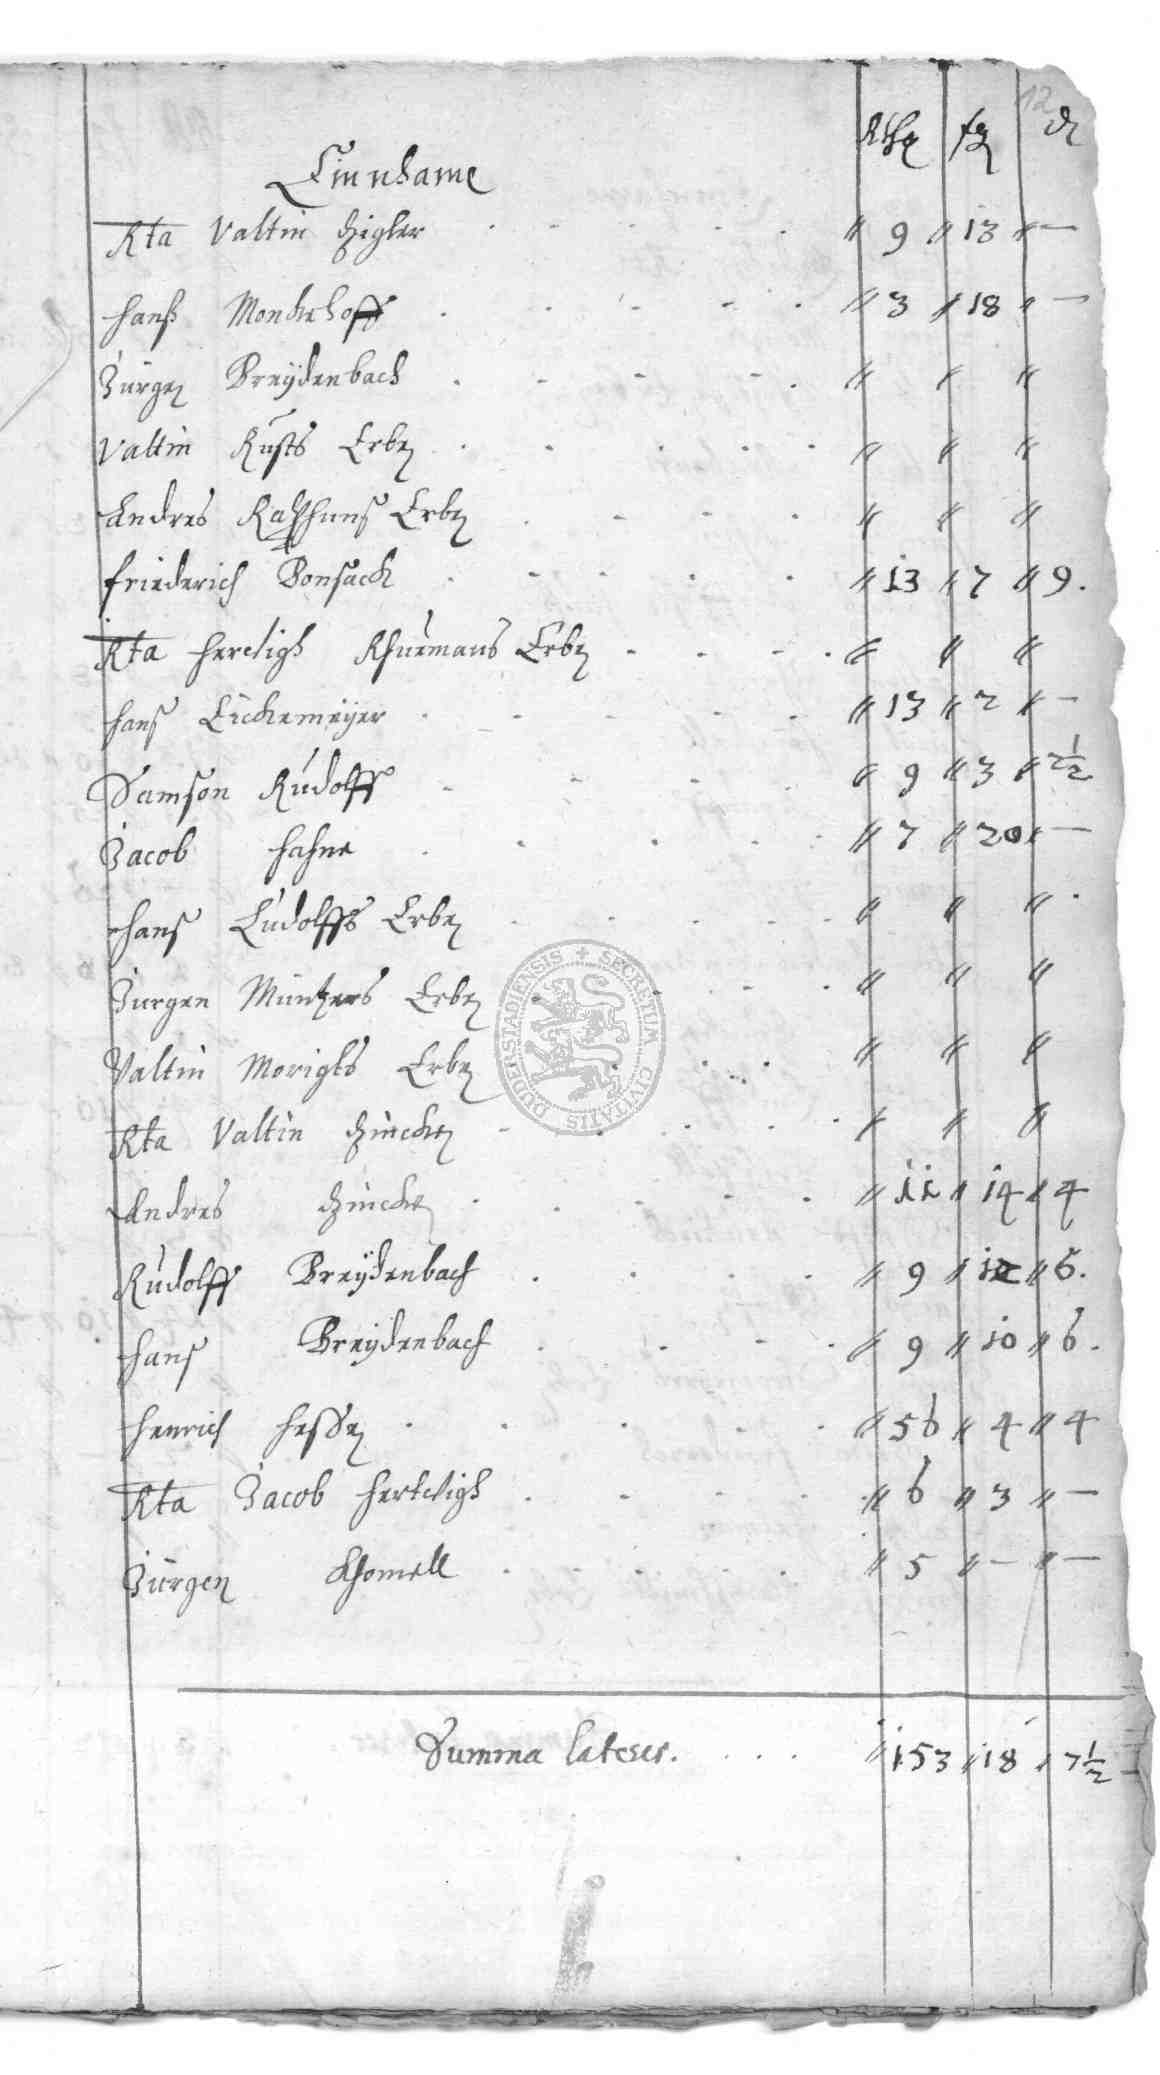 12
Rthlr fg d
Einnhame
Rta Valtin Zigler . . . . . " 9 " 13 " —
Hanß Monckehoff . . . . . " 3 " 18 " —
Jürgen Breÿdenbach . . . . . " " "
Valtin Rusts Erben . . . . . " " "
Andres Erben . . . . " " "
Friederich Bonsack . . . . . " 13 " 7 " 9.
Rta Hertwigh Thurmans Erben . . . . " " "
Hans Eickemeÿer . . . . . " 13 " 2 " —
Samson Rudolff . . . . " 9 " 3 " 2½
Jacob Hahne . . . . . " 7 " 20 " —
Hans Ludolffs Erben . . . . . " " "
Jurgen Müntzers Erben . . . . " " "
Valtin Morigks Erben . . . . " " "
Rta Valtin Zincken . . . . . " " "
Andres Zincken . . . . . " 11 " 14 " 4
Rudolff Breÿdenbach . . . . " 9 " " 6.
Hans Breÿdenbach . . . . " 9 " 10 " 6.
Henrich Hessen . . . . . " 56 " 4 " 4
Rta Jacob Hertwigh . . . . . " 6 " 3 " —
Jürgen Thomell . . . . . " 5 " — " —
Summa lateris. . . . " 153 " 18 " 7½
SECRETUM CIVITATIS DUDERSTADIENSIS